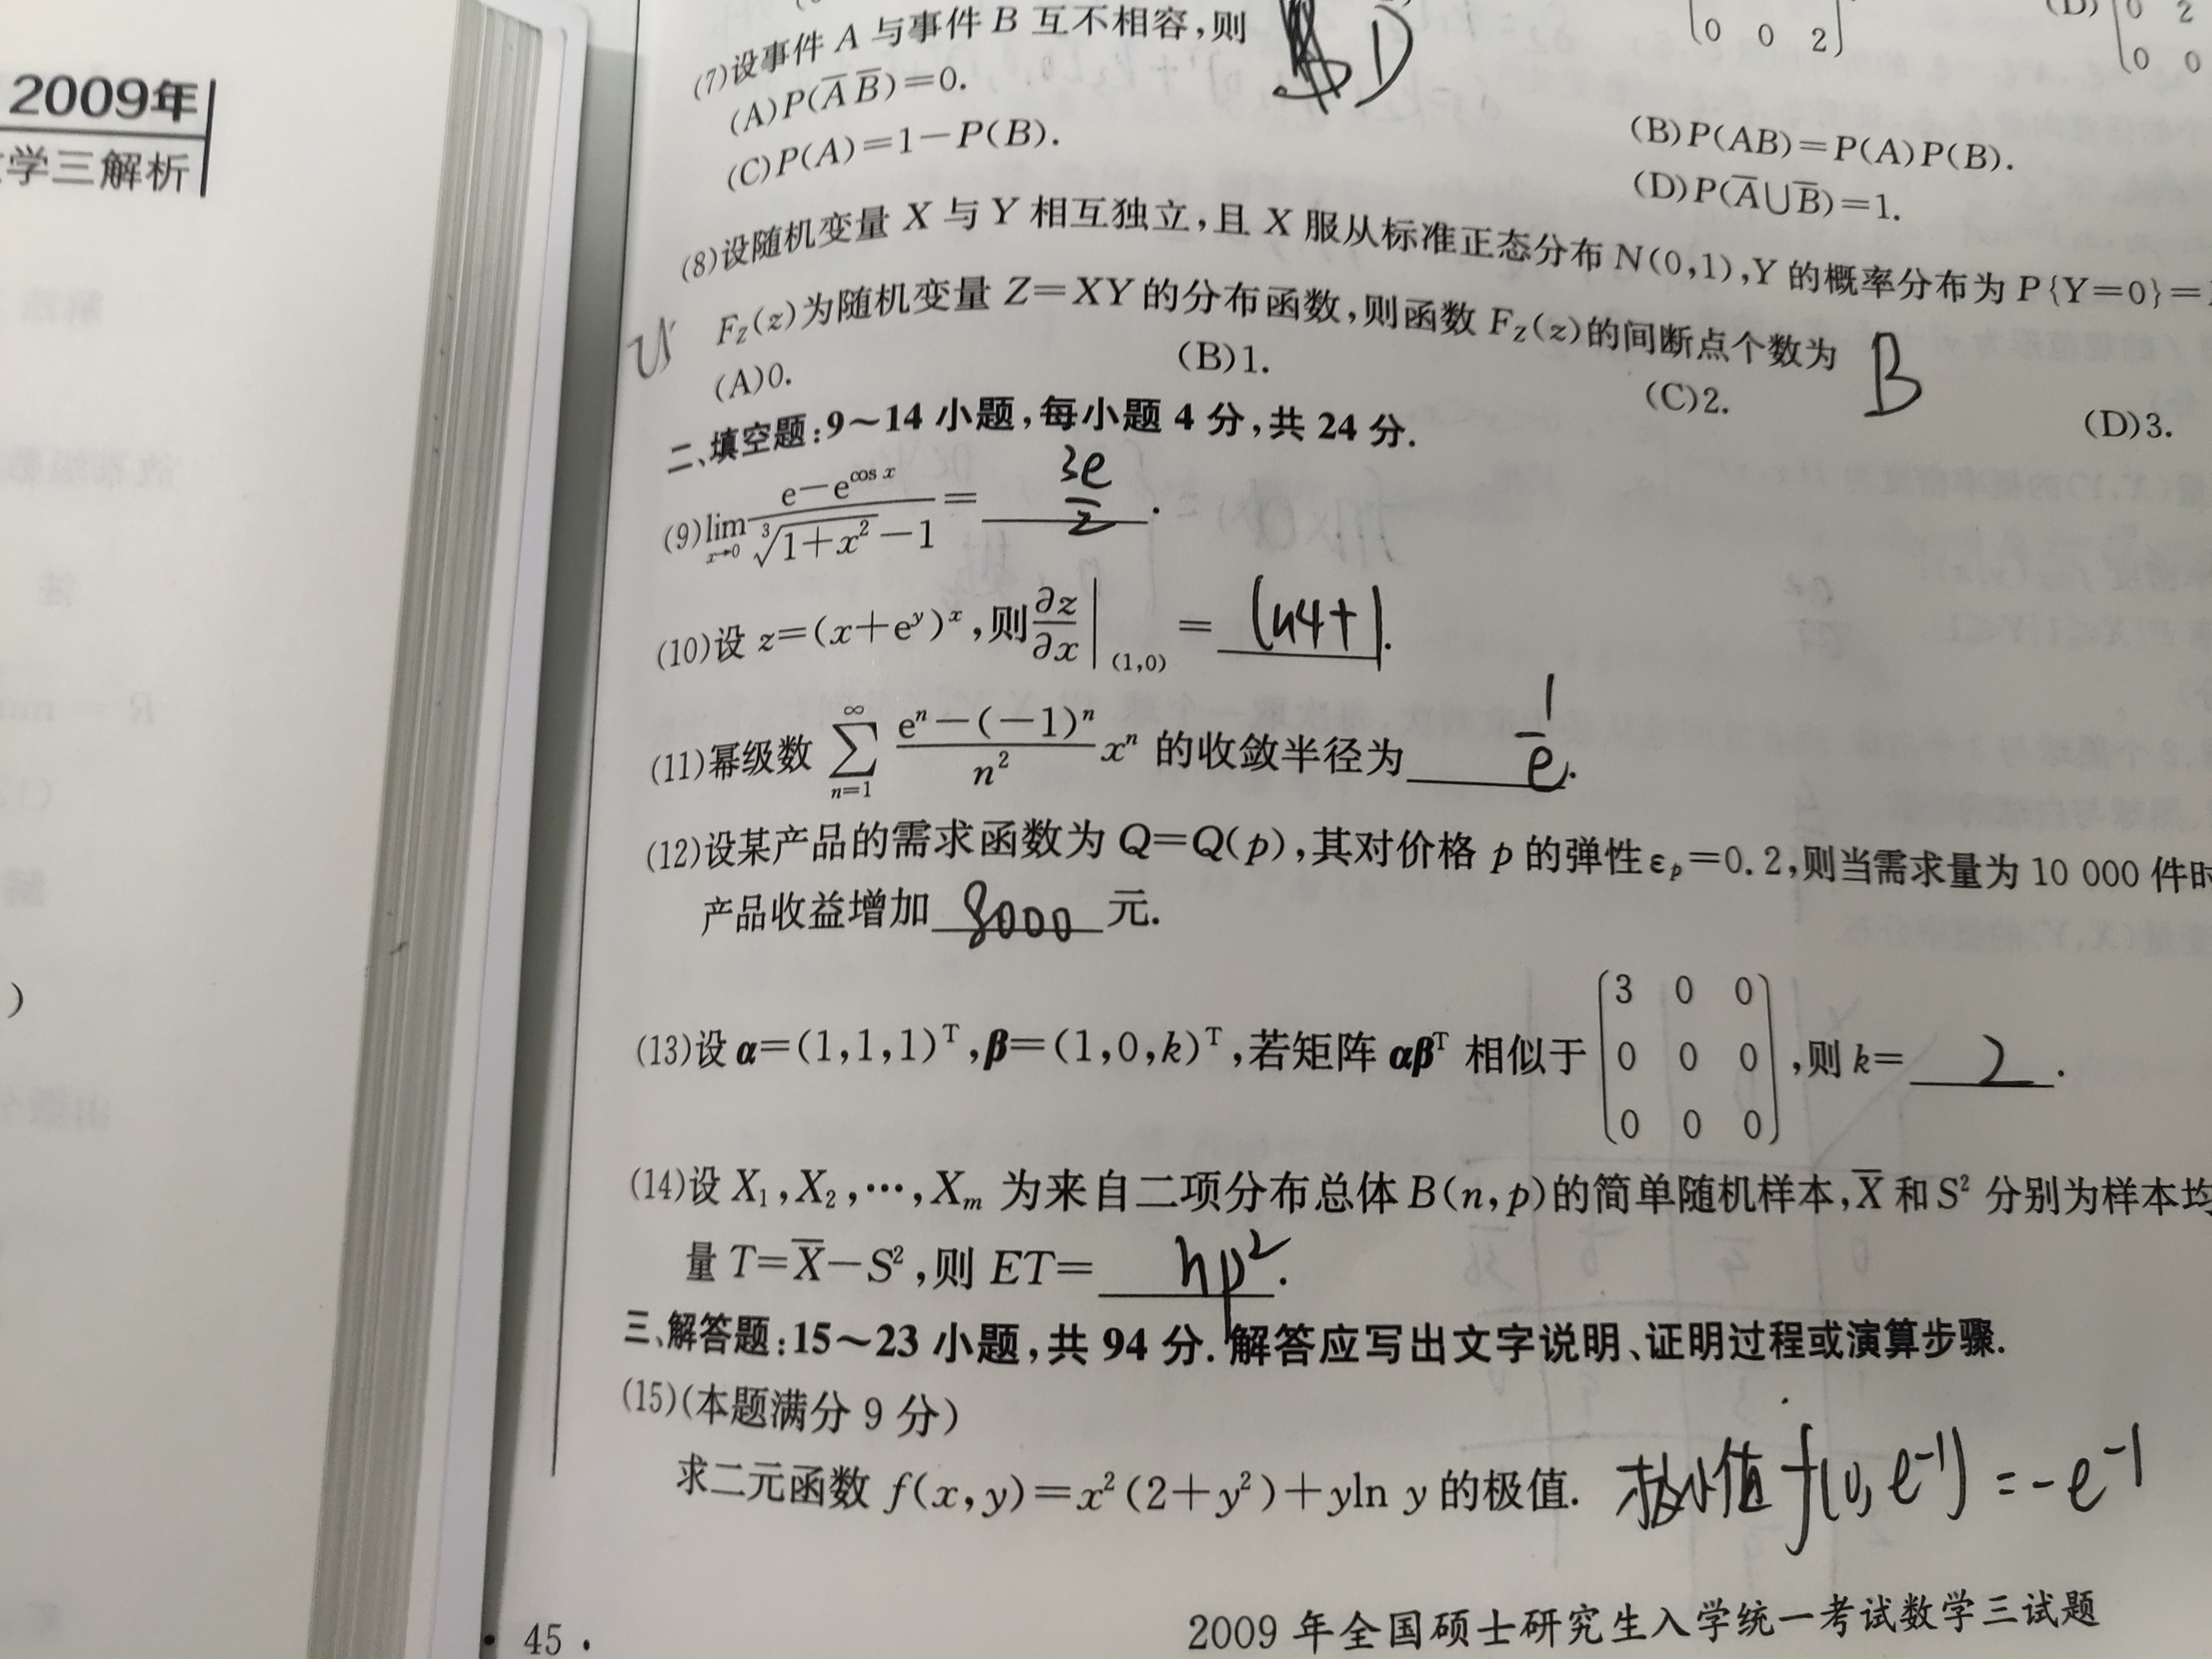 2009年
学三解析
)
0 0 2
(D) 0 2
0 0
(7)设事件 A 与事件 B 互不相容,则 D
(A)P(A̅ B̅)=0.
(B)P(AB)=P(A)P(B).
(C)P(A)=1-P(B).
(D)P(A̅∪B̅)=1.
(8)设随机变量 X 与 Y 相互独立,且 X 服从标准正态分布 N(0,1),Y 的概率分布为 P{Y=0}=
F_Z(z)为随机变量 Z=XY 的分布函数,则函数 F_Z(z)的间断点个数为 B
(A)0. (B)1. (C)2. (D)3.
二、填空题:9~14 小题,每小题 4 分,共 24 分.
(9) lim_{x→0} (e-e^{cos x})/(∛(1+x²)-1) = 3e/2.
(10)设 z=(x+e^y)^x,则 ∂z/∂x|_(1,0) = ln4+1.
(11)幂级数 ∑_{n=1}^{∞} (e^n-(-1)^n)/n² x^n 的收敛半径为 1/e.
(12)设某产品的需求函数为 Q=Q(p),其对价格 p 的弹性 ε_p=0.2,则当需求量为 10 000 件时
产品收益增加 8000 元.
(13)设 α=(1,1,1)^T,β=(1,0,k)^T,若矩阵 αβ^T 相似于 (3 0 0; 0 0 0; 0 0 0),则 k= 2.
(14)设 X₁,X₂,…,X_m 为来自二项分布总体 B(n,p)的简单随机样本,X̅ 和 S² 分别为样本均
量 T=X̅-S²,则 ET= np².
三、解答题:15~23 小题,共 94 分.解答应写出文字说明、证明过程或演算步骤.
(15)(本题满分 9 分)
求二元函数 f(x,y)=x²(2+y²)+yln y 的极值. 极小值 f(0,e⁻¹)=-e⁻¹
· 45 ·
2009 年全国硕士研究生入学统一考试数学三试题